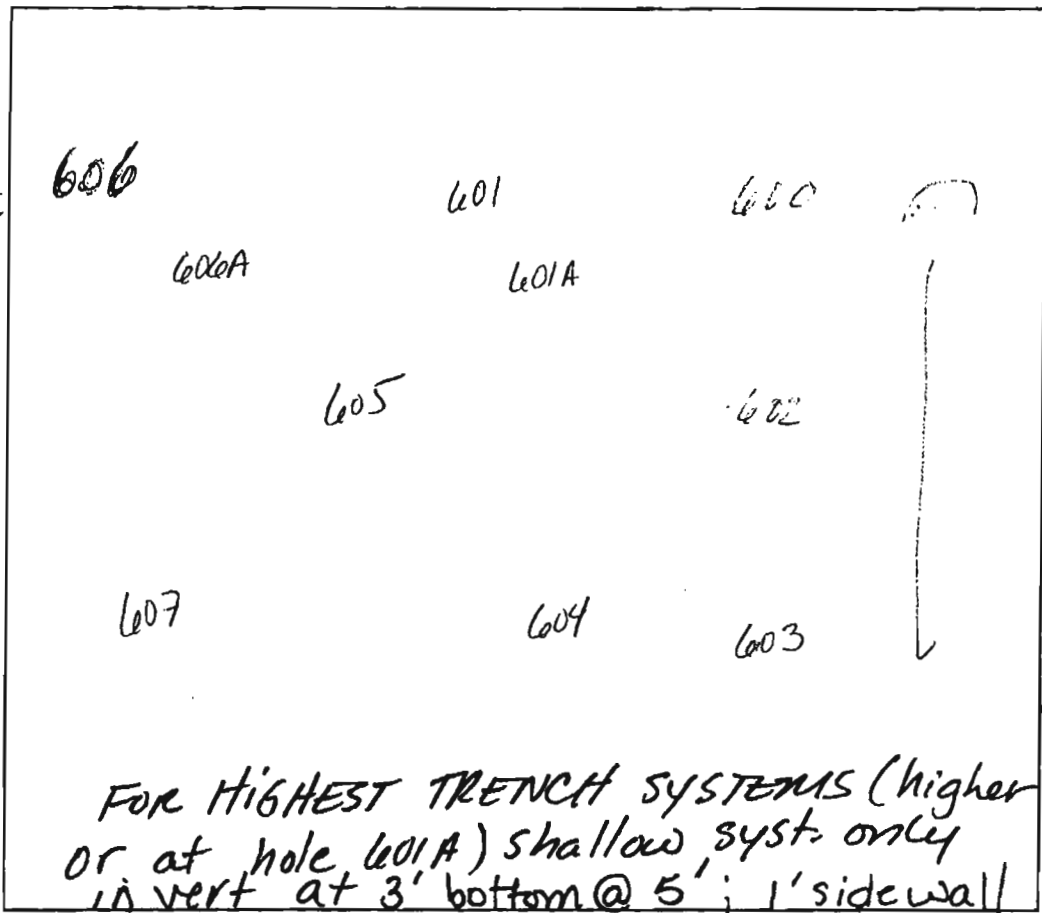 606
601
600
606A
601A
605
602
607
604
603
FOR HIGHEST TRENCH SYSTEMS (higher
or at hole 601A) shallow syst. only
invert at 3' bottom @ 5'; 1' sidewall